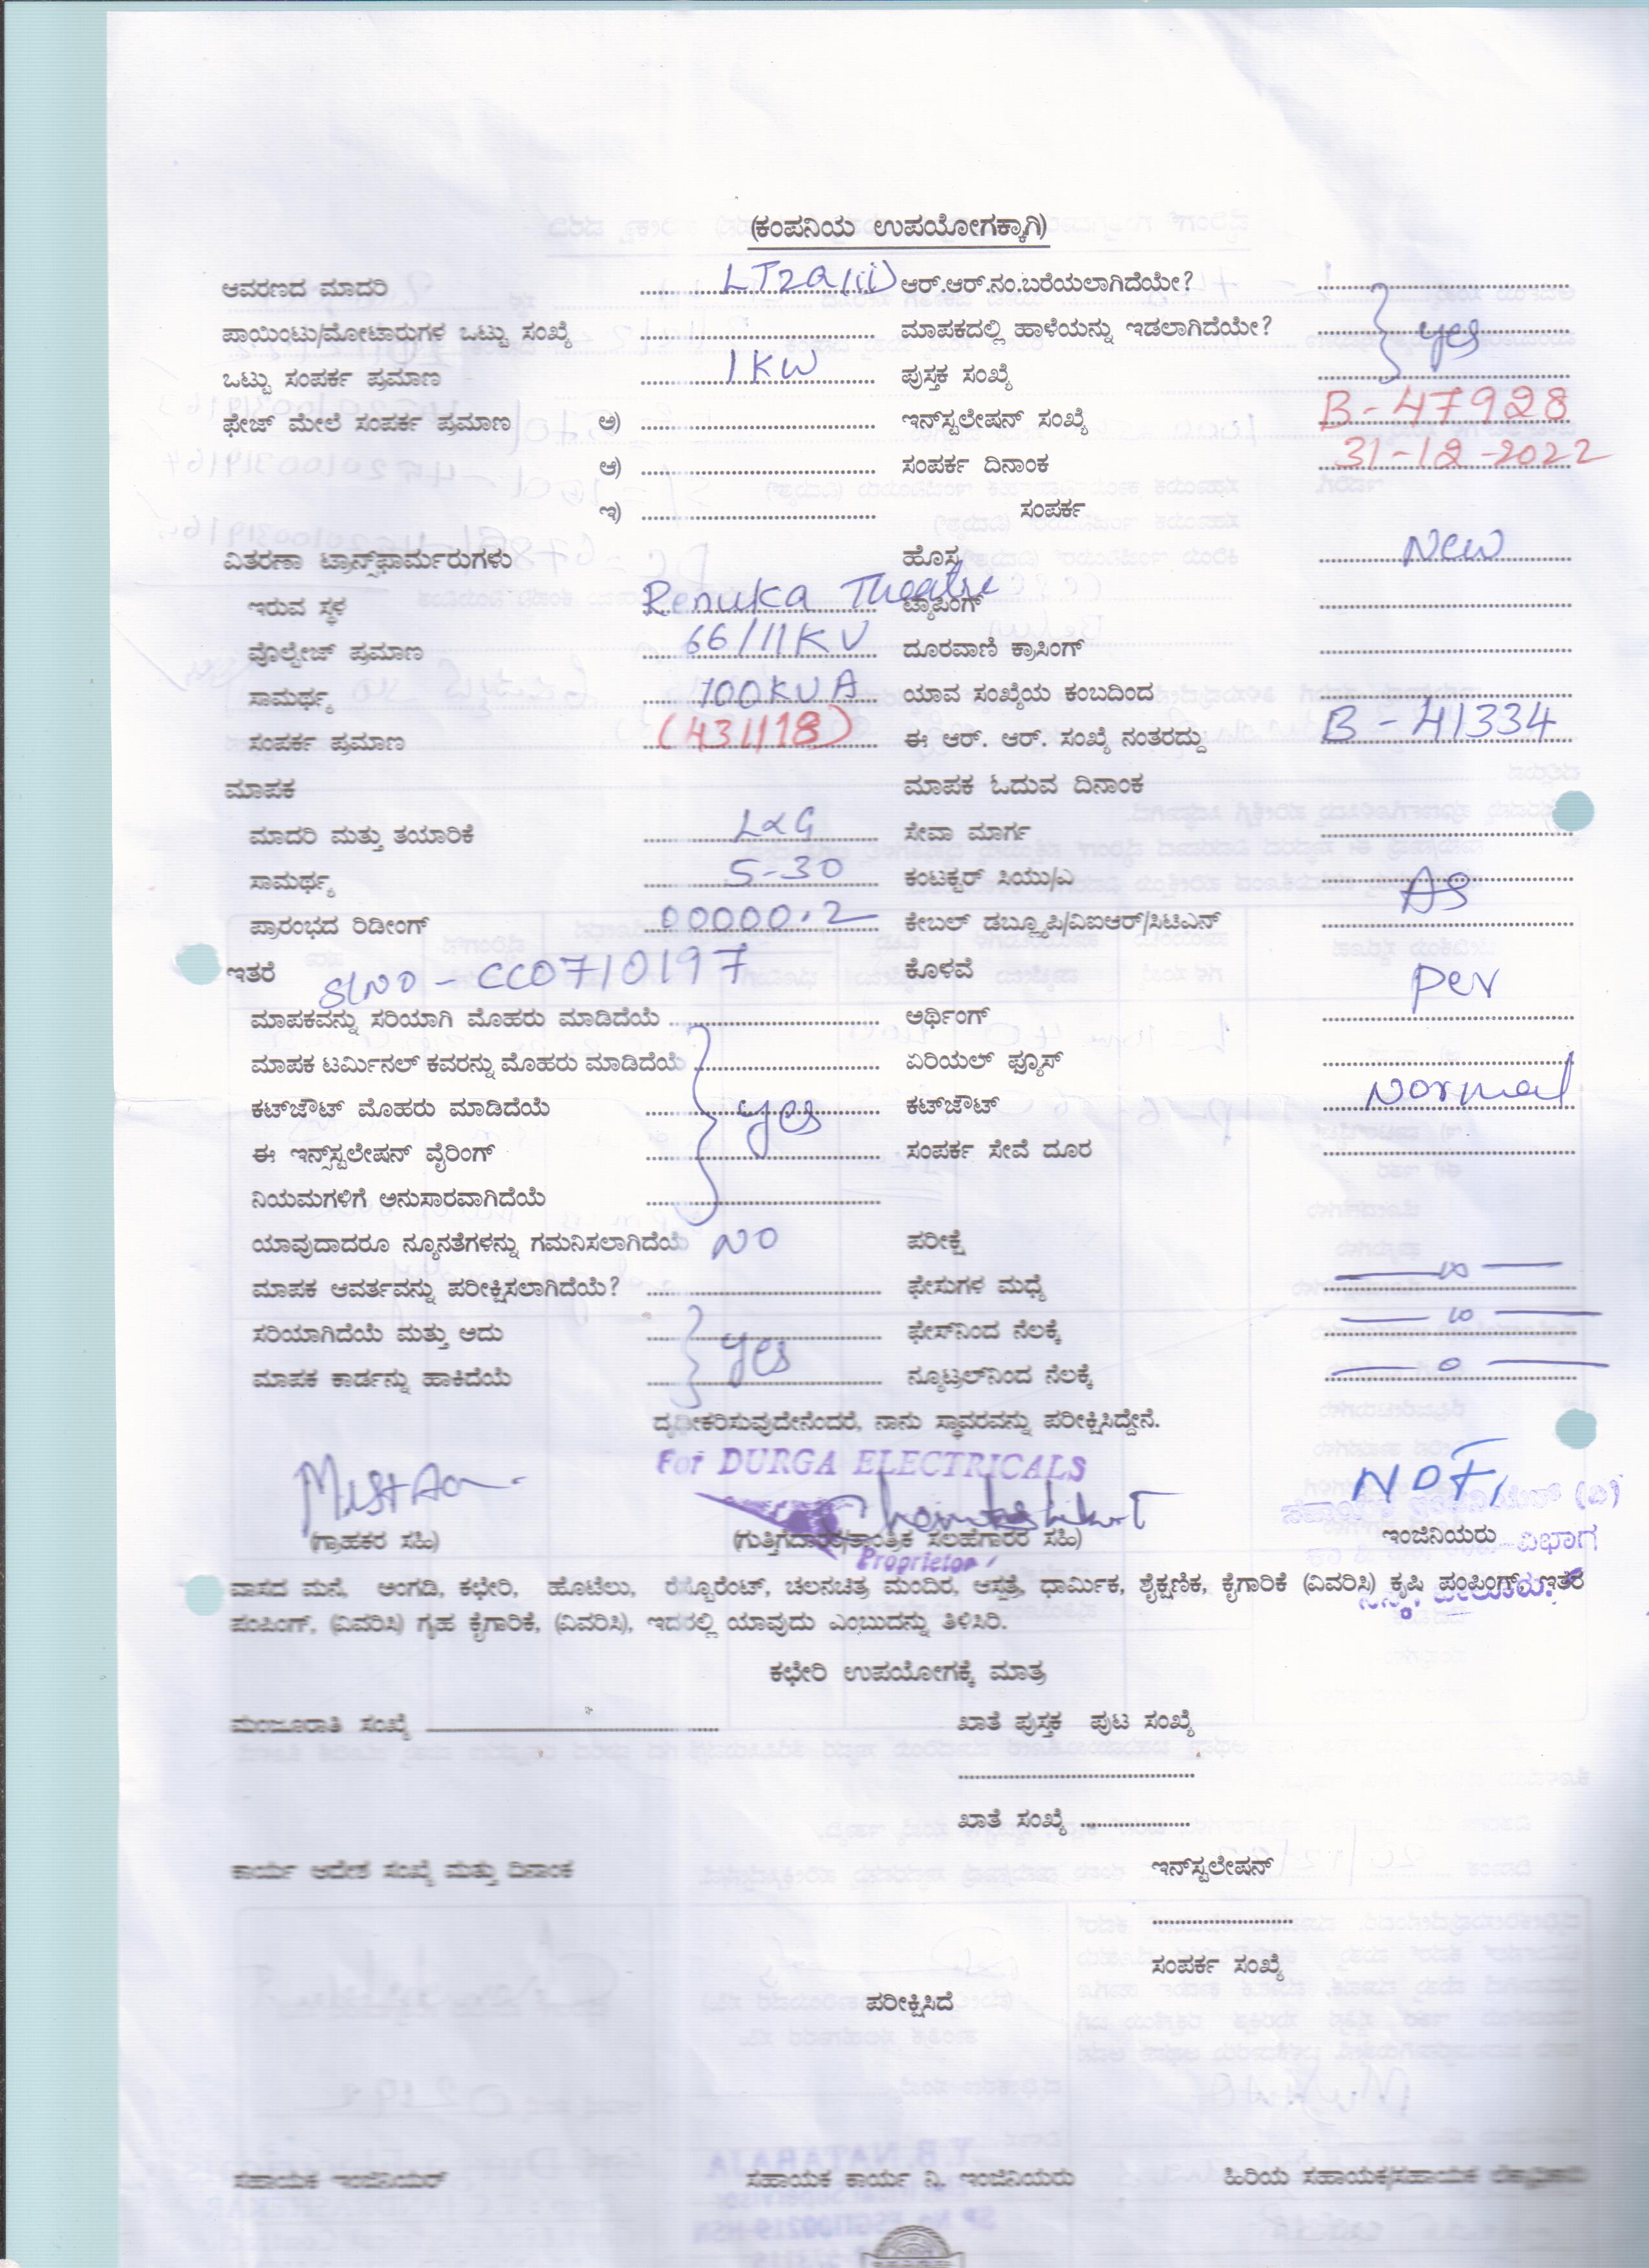 (ಕಂಪನಿಯ ಉಪಯೋಗಕ್ಕಾಗಿ)
ಆವರಣದ ಮಾದರಿ LT2a(ii) ಆರ್.ಆರ್.ನಂ.ಬರೆಯಲಾಗಿದೆಯೇ?
ಪಾಯಿಂಟು/ಮೋಟಾರುಗಳ ಒಟ್ಟು ಸಂಖ್ಯೆ ಮಾಪಕದಲ್ಲಿ ಹಾಳೆಯನ್ನು ಇಡಲಾಗಿದೆಯೇ? yes
ಒಟ್ಟು ಸಂಪರ್ಕ ಪ್ರಮಾಣ 1KW ಪುಸ್ತಕ ಸಂಖ್ಯೆ
ಫೇಜ್ ಮೇಲೆ ಸಂಪರ್ಕ ಪ್ರಮಾಣ ಅ) ಇನ್‌ಸ್ಟಲೇಷನ್ ಸಂಖ್ಯೆ B-47928
ಆ) ಸಂಪರ್ಕ ದಿನಾಂಕ 31-12-2022
ಇ) ಸಂಪರ್ಕ
ವಿತರಣಾ ಟ್ರಾನ್ಸ್‌ಫಾರ್ಮರುಗಳು ಹೊಸ New
ಇರುವ ಸ್ಥಳ Renuka Theatre ಟ್ಯಾಪಿಂಗ್
ವೊಲ್ಟೇಜ್ ಪ್ರಮಾಣ 66/11KV ದೂರವಾಣಿ ಕ್ರಾಸಿಂಗ್
ಸಾಮರ್ಥ್ಯ 100KVA ಯಾವ ಸಂಖ್ಯೆಯ ಕಂಬದಿಂದ
ಸಂಪರ್ಕ ಪ್ರಮಾಣ (431118) ಈ ಆರ್. ಆರ್. ಸಂಖ್ಯೆ ನಂತರದ್ದು B - 41334
ಮಾಪಕ ಮಾಪಕ ಓದುವ ದಿನಾಂಕ
ಮಾದರಿ ಮತ್ತು ತಯಾರಿಕೆ L&G ಸೇವಾ ಮಾರ್ಗ
ಸಾಮರ್ಥ್ಯ 5-30 ಕಂಟಕ್ಟರ್ ಸಿಯು/ಎ
ಪ್ರಾರಂಭದ ರಿಡೀಂಗ್ 00000.2 ಕೇಬಲ್ ಡಬ್ಲ್ಯೂಪಿ/ವಿಐಆರ್/ಸಿಟಿಎನ್ AS
ಇತರೆ SlNo - CC0710197 ಕೊಳವೆ
ಮಾಪಕವನ್ನು ಸರಿಯಾಗಿ ಮೊಹರು ಮಾಡಿದೆಯೆ ಅರ್ಥಿಂಗ್ per
ಮಾಪಕ ಟರ್ಮಿನಲ್ ಕವರನ್ನು ಮೊಹರು ಮಾಡಿದೆಯೆ ಏರಿಯಲ್ ಪ್ಯೂಸ್
ಕಟ್‌ಜೌಟ್ ಮೊಹರು ಮಾಡಿದೆಯೆ yes ಕಟ್‌ಜೌಟ್ Normal
ಈ ಇನ್ಸ್‌ಸ್ಟಲೇಷನ್ ವೈರಿಂಗ್ ಸಂಪರ್ಕ ಸೇವೆ ದೂರ
ನಿಯಮಗಳಿಗೆ ಅನುಸಾರವಾಗಿದೆಯೆ
ಯಾವುದಾದರೂ ನ್ಯೂನತೆಗಳನ್ನು ಗಮನಿಸಲಾಗಿದೆಯೆ NO ಪರೀಕ್ಷೆ
ಮಾಪಕ ಆವರ್ತವನ್ನು ಪರೀಕ್ಷಿಸಲಾಗಿದೆಯೆ? ಫೇಸುಗಳ ಮಧ್ಯೆ
ಸರಿಯಾಗಿದೆಯೆ ಮತ್ತು ಅದು yes ಫೇಸ್‌ನಿಂದ ನೆಲಕ್ಕೆ
ಮಾಪಕ ಕಾರ್ಡನ್ನು ಹಾಕಿದೆಯೆ ನ್ಯೂಟ್ರಲ್‌ನಿಂದ ನೆಲಕ್ಕೆ
ದೃಢೀಕರಿಸುವುದೇನೆಂದರೆ, ನಾನು ಸ್ಥಾವರವನ್ನು ಪರೀಕ್ಷಿಸಿದ್ದೇನೆ.
For DURGA ELECTRICALS
(ಗ್ರಾಹಕರ ಸಹಿ) (ಗುತ್ತಿಗೆದಾರರ/ತಾಂತ್ರಿಕ ಸಲಹೆಗಾರರ ಸಹಿ) ಇಂಜಿನಿಯರು ವಿಭಾಗ
Proprietor
ವಾಸದ ಮನೆ, ಅಂಗಡಿ, ಕಛೇರಿ, ಹೊಟೆಲು, ರೆಸ್ಟೊರೆಂಟ್, ಚಲನಚಿತ್ರ ಮಂದಿರ, ಆಸ್ಪತ್ರೆ, ಧಾರ್ಮಿಕ, ಶೈಕ್ಷಣಿಕ, ಕೈಗಾರಿಕೆ (ವಿವರಿಸಿ) ಕೃಷಿ ಪಂಪಿಂಗ್, ಇತರೆ
ಪಂಪಿಂಗ್, (ವಿವರಿಸಿ) ಗೃಹ ಕೈಗಾರಿಕೆ, (ವಿವರಿಸಿ), ಇದರಲ್ಲಿ ಯಾವುದು ಎಂಬುದನ್ನು ತಿಳಿಸಿರಿ.
ಕಛೇರಿ ಉಪಯೋಗಕ್ಕೆ ಮಾತ್ರ
ಮಂಜೂರಾತಿ ಸಂಖ್ಯೆ ಖಾತೆ ಪುಸ್ತಕ ಪುಟ ಸಂಖ್ಯೆ
ಖಾತೆ ಸಂಖ್ಯೆ
ಕಾರ್ಯ ಆದೇಶ ಸಂಖ್ಯೆ ಮತ್ತು ದಿನಾಂಕ ಇನ್‌ಸ್ಟಲೇಷನ್
ಸಂಪರ್ಕ ಸಂಖ್ಯೆ
ಪರೀಕ್ಷಿಸಿದೆ
ಸಹಾಯಕ ಇಂಜಿನಿಯರ್ ಸಹಾಯಕ ಕಾರ್ಯ ನಿ. ಇಂಜಿನಿಯರು ಹಿರಿಯ ಸಹಾಯಕ/ಸಹಾಯಕ